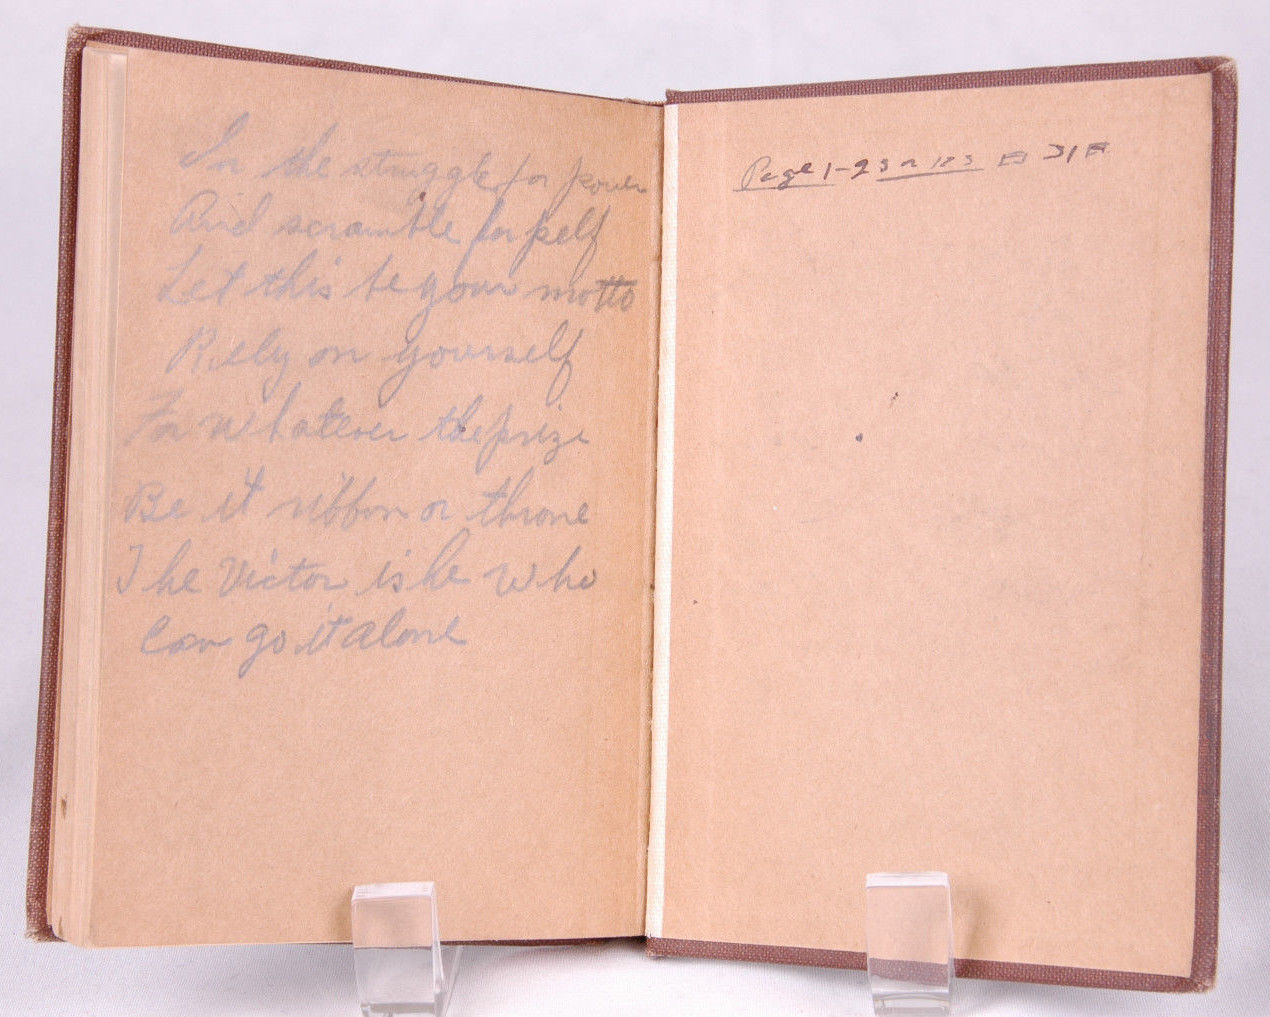 In the struggle for power
And scramble for pelf
Let this be your motto
Rely on yourself
For whatever the prize
Be it ribbon or throne
The Victor is he who
Can go it alone
Page 1-23